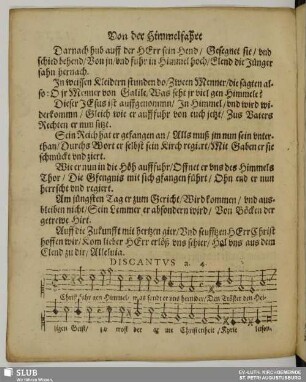 Von der Himmelfahrt
Darnach hub auff der HErr sein Hend/ Gesegnet sie/ vnd
schied behend/ Von jn/ vnd fuhr in Himmel hoch/ Elend die Jünger
sahn hernach.
In weissen Kleidern stunden do/ Zween Menner/ die sagten al-
so: O jr Menner von Galile/ Was seht jr viel gen Himmele?
Dieser JEsus ist auffgenommn/ In Himmel/ vnd wird wi-
derkommn/ Gleich wie er auffuhr von euch jetzt/ Zus Vaters
Rechten er nun sitzt.
Sein Reich hat er gefangen an/ Alls muß jm nun sein vnter-
than/ Durchs Wort er selbst sein Kirch regirt/ Mit Gaben er sie
schmückt vnd ziert.
Wie er nun in die Höh auffuhr/ Offnet er vns des Himmels
Thor/ Die Gfengnis mit sich gfangen führt/ Ohn end er nun
herrscht vnd regiert.
Am jüngsten Tag er zum Gericht/ Wird kommen/ vnd aus-
bleiben nicht/ Sein Lemmer er absondern wird/ Von Böcken der
getrewe Hirt.
Auff die Zukunfft mit hertzen gier/ Vnd seufftzen HErr Christ
hoffen wir/ Kom lieber HErr erlöß vns schier/ Hol vns aus dem
Elend zu dir/ Alleluia.
DISCANTVS à. 4.
Christ fuhr gen Himmel/ was sandt er vns hernider/ Den Tröster den Hei-
ligen Geist/ zu trost der armen Christenheit/ Kyrie leison.
SLUB
Wir führen Wissen.
EV.-LUTH. KIRCHGEMEINDE
ST. PETRI AUGUSTUSBURG